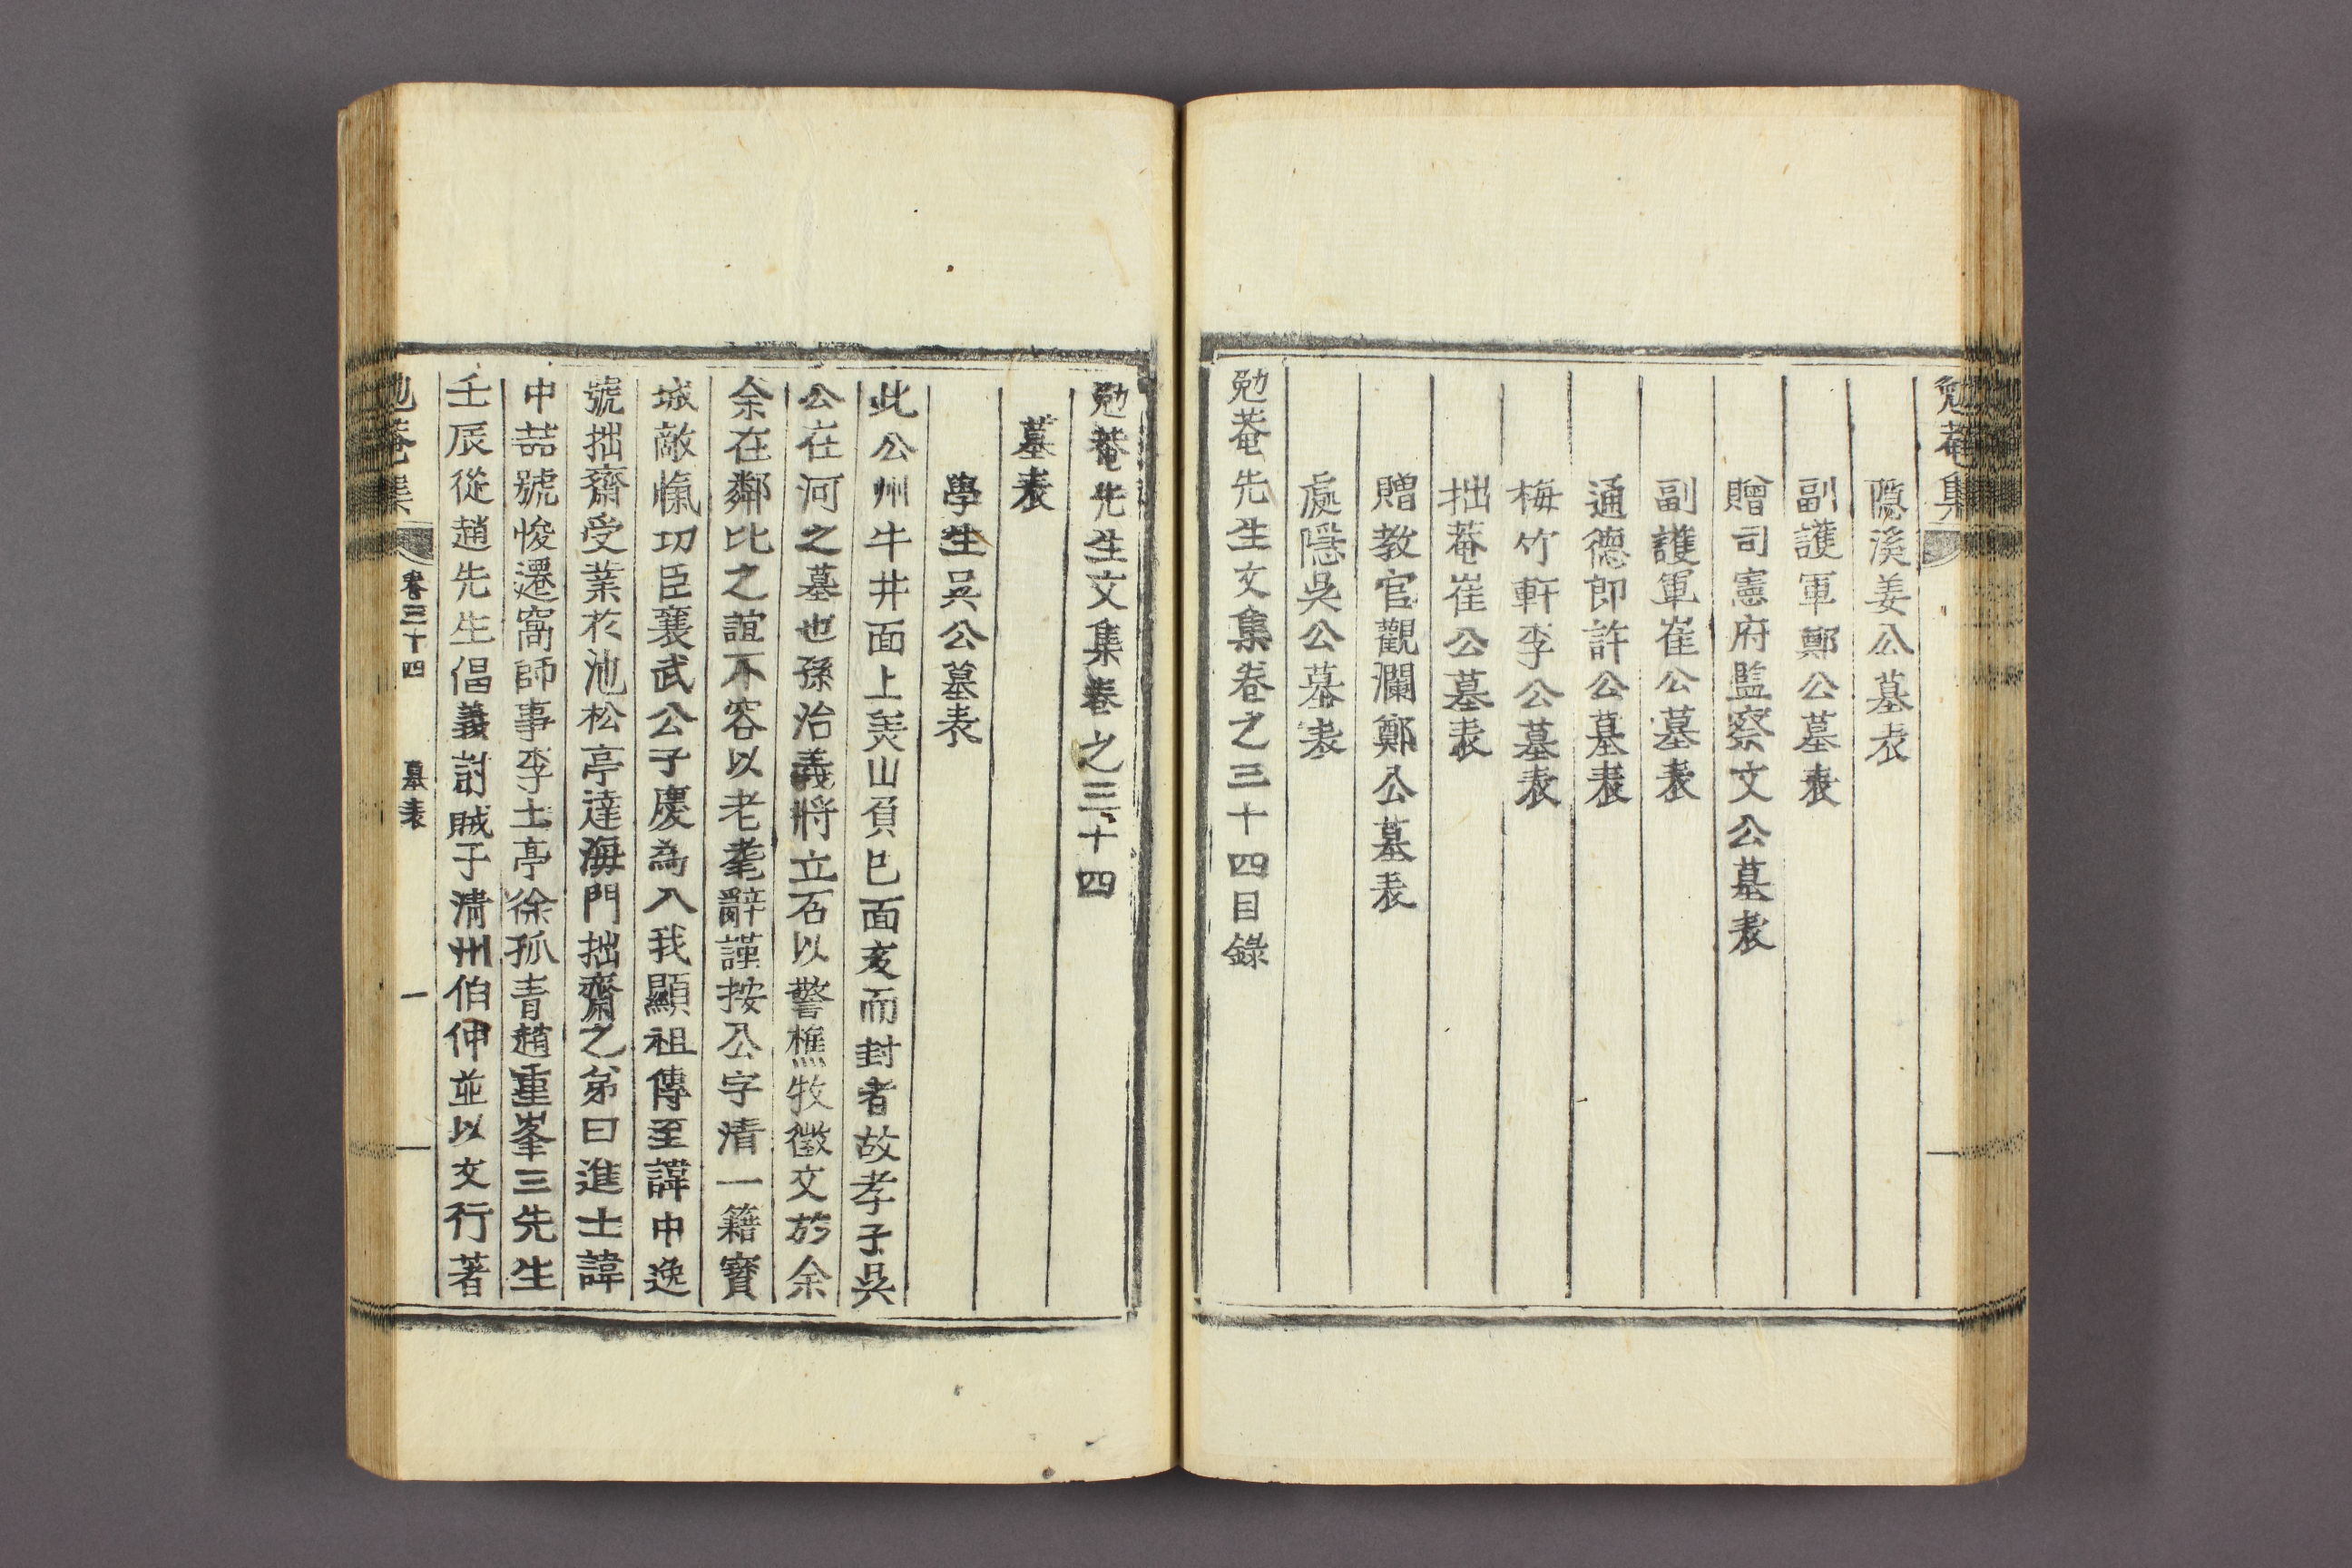 勉菴集
隱溪姜公墓表
副護軍鄭公墓表
贈司憲府監察文公墓表
副護軍崔公墓表
通德郎許公墓表
梅竹軒李公墓表
拙菴崔公墓表
贈教官觀瀾鄭公墓表
處隱吳公墓表
勉菴先生文集卷之三十四目錄
勉菴先生文集卷之三十四
墓表
學生吳公墓表
此公州牛井面上美山負巳面亥而封者故孝子吳
公在河之墓也孫治義將立石以警樵牧徵文於余
余在鄰比之誼不容以老耄辭謹按公字清一籍寶
城敵愾功臣襄武公子慶爲入我顯祖傳至諱中逸
號拙齋受業於池松亭達海門拙齋之弟曰進士諱
中喆號悛遷窩師事李土亭徐孤青趙重峯三先生
壬辰從趙先生倡義討賊子淸州伯仲並以文行著
勉菴集
卷三十四
墓表
一